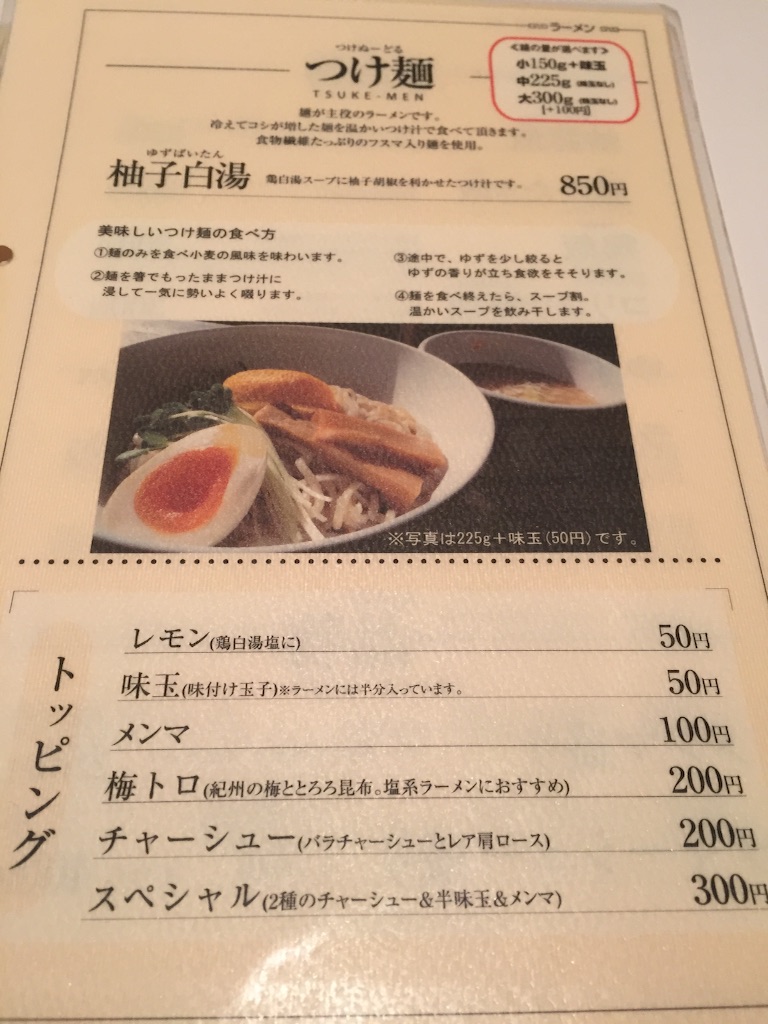 ラーメン
つけぬーどる
つけ麺
TSUKE-MEN
≪麺の量が選べます≫
小150g+味玉
中225g (味玉なし)
大300g (味玉なし)
[+100円]
麺が主役のラーメンです。
冷えてコシが増した麺を温かいつけ汁で食べて頂きます。
食物繊維たっぷりのフスマ入り麺を使用。
ゆずぱいたん
柚子白湯 鶏白湯スープに柚子胡椒を利かせたつけ汁です。 850円
美味しいつけ麺の食べ方
①麺のみを食べ小麦の風味を味わいます。
②麺を箸でもったままつけ汁に
浸して一気に勢いよく啜ります。
③途中で、ゆずを少し絞ると
ゆずの香りが立ち食欲をそそります。
④麺を食べ終えたら、スープ割。
温かいスープを飲み干します。
※写真は225g+味玉(50円)です。
トッピング
レモン(鶏白湯塩に) 50円
味玉(味付け玉子)※ラーメンには半分入っています。 50円
メンマ 100円
梅トロ(紀州の梅ととろろ昆布。塩系ラーメンにおすすめ) 200円
チャーシュー(バラチャーシューとレア肩ロース) 200円
スペシャル(2種のチャーシュー&半味玉&メンマ) 300円